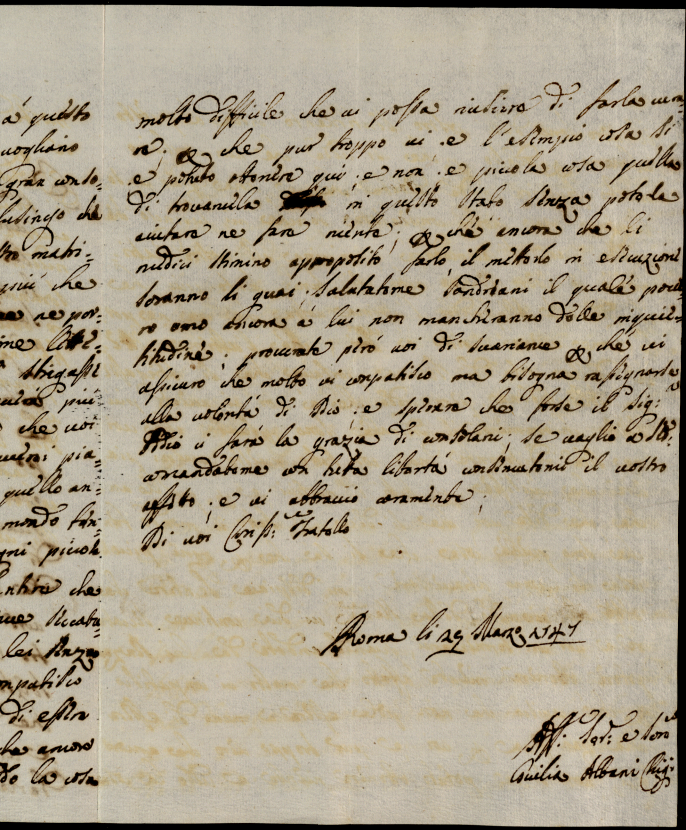 a questo
vogliano
gran conso=
lusingo che
matri=
più che
ne por=
me
strigassi
più
che voi
pia=
quello an=
mondo
ogni picola
che
seccatu=
lei senza
compatisco
di essere
che amore
la cosa
molto difficile che vi possa riuscire di farla veni=
re; e che pur troppo vi è l'esempio cosa si
è potuto otenere qui e non è picola cosa quella
di trovarsela in questo stato senza poterla
aiutare ne fare niente; e che ancora che li
medici stimino approposito farlo, il metterlo in esecuzione
saranno li guai; salutatome il quale pove=
ro omo ancora a lui non mancheranno delle inquie=
titudine; procurate però voi di svariarve e che vi
assicuro che molto vi compatisco ma bisogna rassignarse
alla volontà di Dio; e sperare che forse il Sig:
Idio ci farà la grazia di consolarci; se vaglio a ser:
comandatome con tutta libertà continuatomi il vostro
affetto; e vi abbraccio caramente;
Di voi Cariss: Fratello
Roma li 29 Marzo 1747
Aff: Ser: e Sorella
Albani Chigi